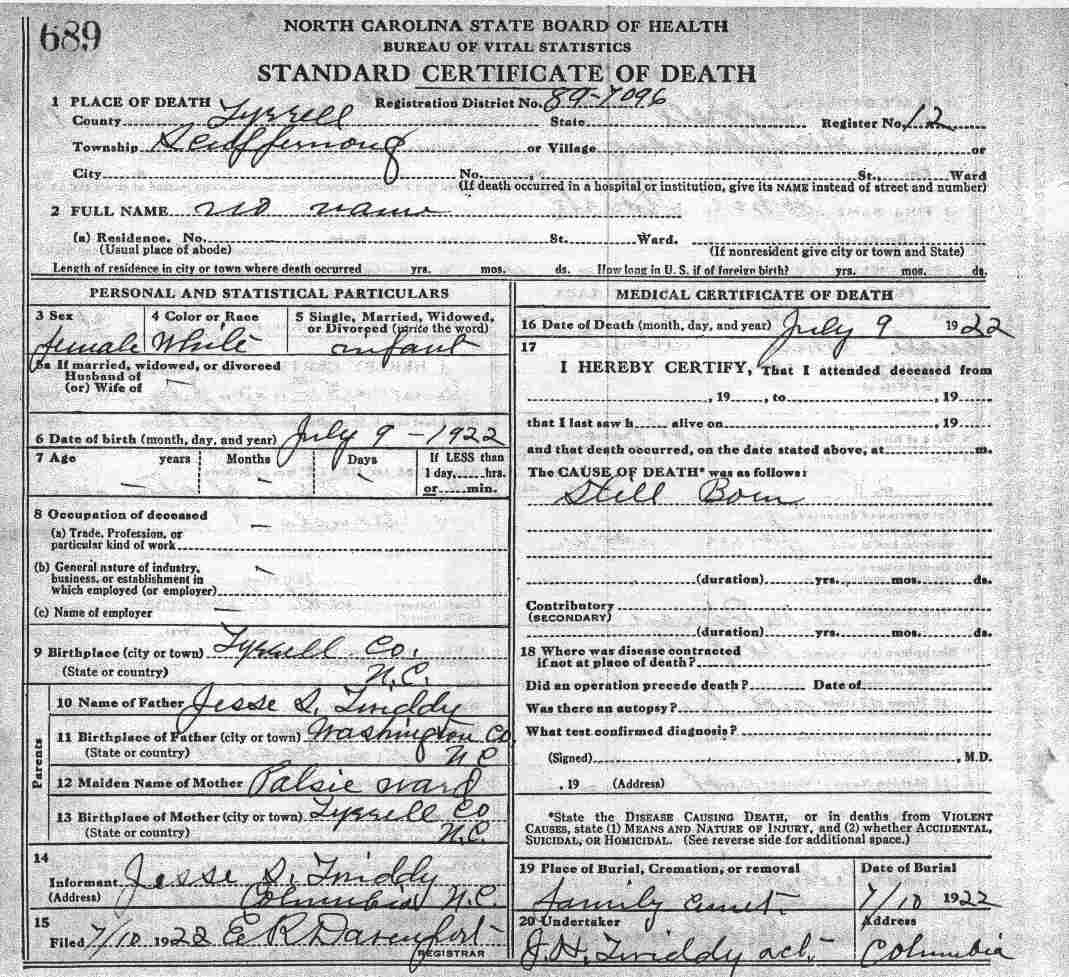 689
NORTH CAROLINA STATE BOARD OF HEALTH
BUREAU OF VITAL STATISTICS
STANDARD CERTIFICATE OF DEATH
1 PLACE OF DEATH Registration District No. 89-7096
County Tyrrell State Register No. 12
Township Scuppernong or Village or
City No. St., Ward
(If death occurred in a hospital or institution, give its NAME instead of street and number)
2 FULL NAME no name
(a) Residence. No. St. Ward.
(Usual place of abode) (If nonresident give city or town and State)
Length of residence in city or town where death occurred yrs. mos. ds. How long in U. S. if of foreign birth? yrs. mos. ds.
PERSONAL AND STATISTICAL PARTICULARS
3 Sex 4 Color or Race 5 Single, Married, Widowed,
or Divorced (write the word)
female White infant
5a If married, widowed, or divorced
Husband of
(or) Wife of —
6 Date of birth (month, day, and year) July 9 - 1922
7 Age years Months Days If LESS than
1 day, hrs.
— — — or min.
8 Occupation of deceased —
(a) Trade, Profession, or
particular kind of work
(b) General nature of industry, —
business, or establishment in
which employed (or employer)
(c) Name of employer —
9 Birthplace (city or town) Tyrrell Co.
(State or country) N.C.
Parents
10 Name of Father Jesse S. Twiddy
11 Birthplace of Father (city or town) Washington Co.
(State or country) N C
12 Maiden Name of Mother Palsie Ward
13 Birthplace of Mother (city or town) Tyrrell Co
(State or country) N.C.
14
Informant Jesse S. Twiddy
(Address) Columbia N.C.
15
Filed 7/10 1922 E R Davenport
REGISTRAR
MEDICAL CERTIFICATE OF DEATH
16 Date of Death (month, day, and year) July 9 1922
17
I HEREBY CERTIFY, That I attended deceased from
, 19 , to , 19
that I last saw h alive on , 19
and that death occurred, on the date stated above, at m.
The CAUSE OF DEATH* was as follows:
Still Born
(duration) yrs. mos. ds.
Contributory
(SECONDARY)
(duration) yrs. mos. ds.
18 Where was disease contracted
if not at place of death?
Did an operation precede death? Date of
Was there an autopsy?
What test confirmed diagnosis?
(Signed) , M.D.
, 19 (Address)
*State the DISEASE CAUSING DEATH, or in deaths from VIOLENT
CAUSES, state (1) MEANS AND NATURE OF INJURY, and (2) whether ACCIDENTAL,
SUICIDAL, or HOMICIDAL. (See reverse side for additional space.)
19 Place of Burial, Cremation, or removal Date of Burial
family cemet. 7/10 1922
20 Undertaker Address
J. H. Twiddy act. Columbia